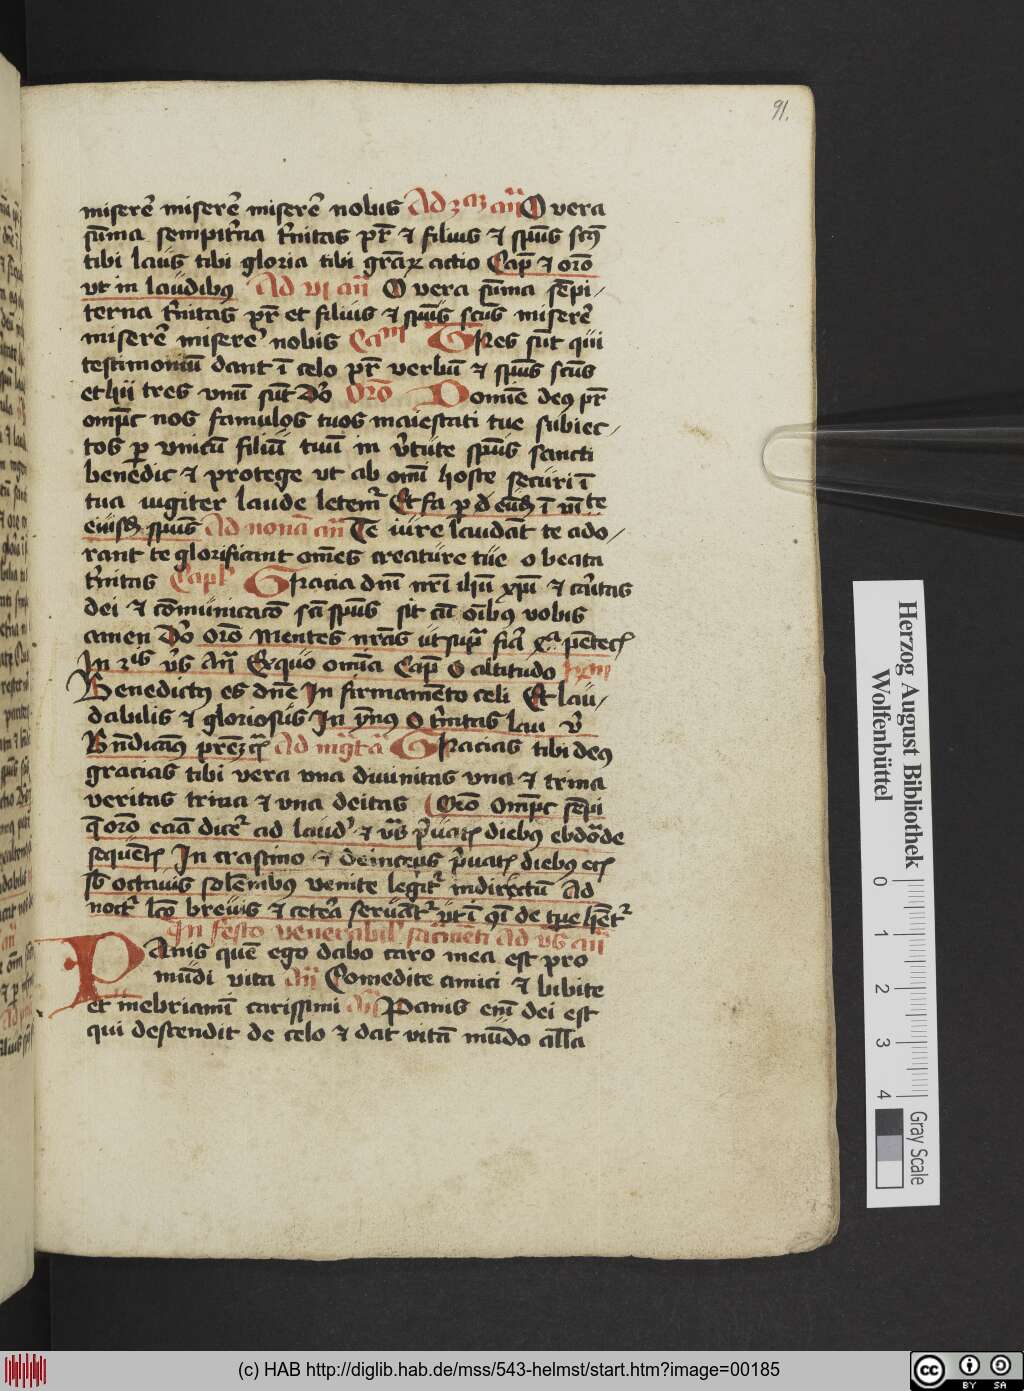 91.
miserē miserē miserē nobis Ad 3am an̄ O vera
sūma sempit'na t'nitas pr̄ ⁊ filius ⁊ sp̄us sc̄s
tibi laus tibi gloria tibi gr̄aꝝ actio Cap̄ ⁊ orō
vt in laudibus Ad vi an̄ O vera sūma sēpi/
terna t'nitas pr̄ et filius ⁊ sp̄us scūs miserē
miserē miserē nobis Capm Tres sūt qui
testimoniū dant ī celo pr̄ verbū ⁊ sp̄us scūs
et hii tres vnū sūt Do' Orō Domīe deꝯ pr̄
omp̄c nos famulos tuos maiestati tue subiec/
tos ꝑ vnicū filiū tuū in v'tute sp̄us sancti
benedic ⁊ protege vt ab omī hoste securi ī
tua iugiter laude letem̄ Et fa ꝑ d eūd ī vīte
eiusd sp̄us Ad nonā an̄ Te iure laudāt te ado/
rant te glorificant om̄es creature tue o beata
t'nitas Capl' Gracia dn̄i nr̄i ih̄u xp̄i ⁊ caritas
dei ⁊ cōmunicacō sc̄i sp̄us sit cū oībꝯ vobis
amen Do' Orō Mentes nr̄as ūt sup̄
In 2is v̄s An̄ Ex quo omīa Cap̄ O altitudo
Benedictꝯ es dn̄e In firmamēto celi Et lau/
dabilis ⁊ gloriosus In ẏmꝯ O t'nitas lau v̄
Bn̄dicamꝯ Ad mgt̄a Gracias tibi deꝯ
gracias tibi vera vna diuinitas vna ⁊ trina
veritas trina ⁊ vna deitas Orō Omp̄c sēpi
q orō eciā ad laud' ⁊ v̄s p'uatꝭ diebꝯ ebdōde
sequētꝭ In crastino ⁊ deinceps p'uatꝭ diebꝯ ecꝭ
octauis solēnibꝯ venite legit' indirectū Ad
noct' lcō breuis ⁊ cetera seruāt' ūt ī de tpe hn̄t'
In festo venerabil' sac̄mēti Ad v̄s an̄
Panis quē ego dabo caro mea est pro
mūdi vita an̄ Comedite amici ⁊ bibite
et inebriamī carissimi an̄ Panis em̄ dei est
qui descendit de celo ⁊ dat vitā mūdo all̄a
Herzog August Bibliothek
Wolfenbüttel
0 1 2 3 4
Gray Scale
(c) HAB http://diglib.hab.de/mss/543-helmst/start.htm?image=00185
cc BY SA